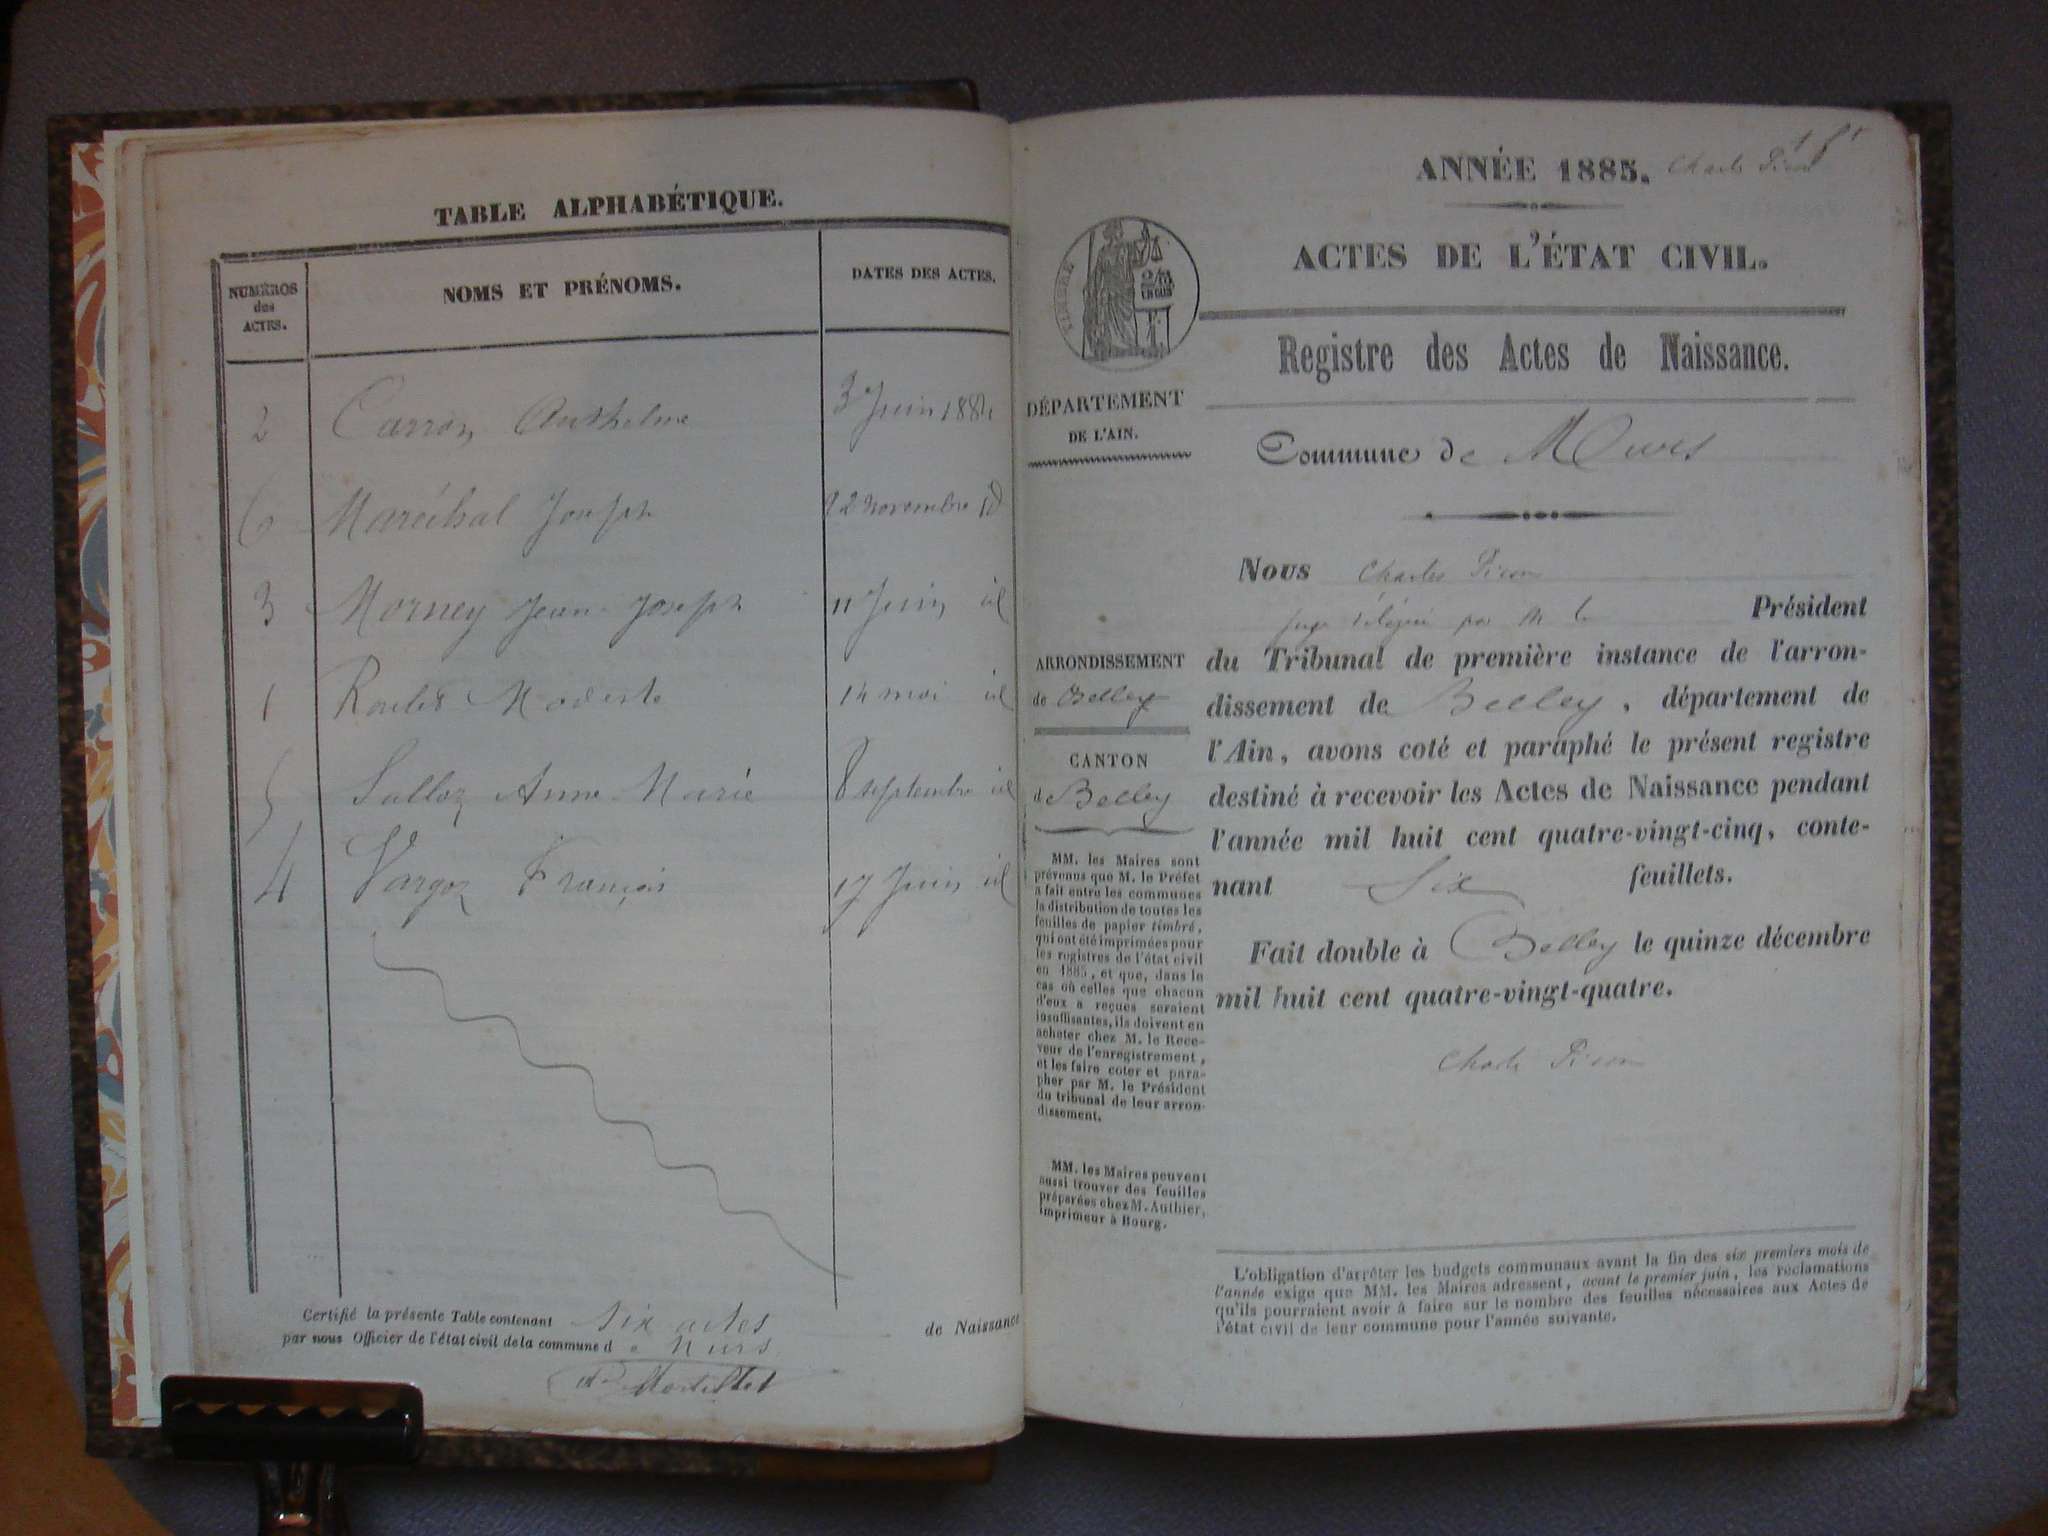 TABLE ALPHABÉTIQUE.
NUMÉROS des ACTES.
NOMS ET PRÉNOMS.
DATES DES ACTES.
2 Carron Anthelme 3 Juin 1884
6 Maréchal Joseph 22 novembre id
3 Morney Jean Joseph 11 Juin id
1 Modeste 14 mai id
5 Sulloz Anne Marie 8 septembre id
4 Vargoz François 17 Juin id
Certifié la présente Table contenant six actes de Naissance
par nous Officier de l'état civil de la commune de Murs
de Mortillet
ANNÉE 1885. Charles Picon
ACTES DE L'ÉTAT CIVIL.
Registre des Actes de Naissance.
DÉPARTEMENT
DE L'AIN.
Commune de Murs
Nous Charles Picon
juge délégué par M le Président
ARRONDISSEMENT
de Belley
CANTON
de Belley
du Tribunal de première instance de l'arron-
dissement de Belley, département de
l'Ain, avons coté et paraphé le présent registre
destiné à recevoir les Actes de Naissance pendant
l'année mil huit cent quatre-vingt-cinq, conte-
nant Six feuillets.
Fait double à Belley le quinze décembre
mil huit cent quatre-vingt-quatre.
Charles Picon
MM. les Maires sont
prévenus que M. le Préfet
a fait entre les communes
la distribution de toutes les
feuilles de papier timbré,
qui ont été imprimées pour
les registres de l'état civil
en 1885, et que, dans le
cas où celles que chacun
d'eux a reçues seraient
insuffisantes, ils doivent en
acheter chez M. le Rece-
veur de l'enregistrement,
et les faire coter et para-
pher par M. le Président
du tribunal de leur arron-
dissement.
MM. les Maires peuvent
aussi trouver des feuilles
préparées chez M. Authier,
imprimeur à Bourg.
L'obligation d'arrêter les budgets communaux avant la fin des six premiers mois de
l'année exige que MM. les Maires adressent, avant le premier juin, les réclamations
qu'ils pourraient avoir à faire sur le nombre des feuilles nécessaires aux Actes de
l'état civil de leur commune pour l'année suivante.